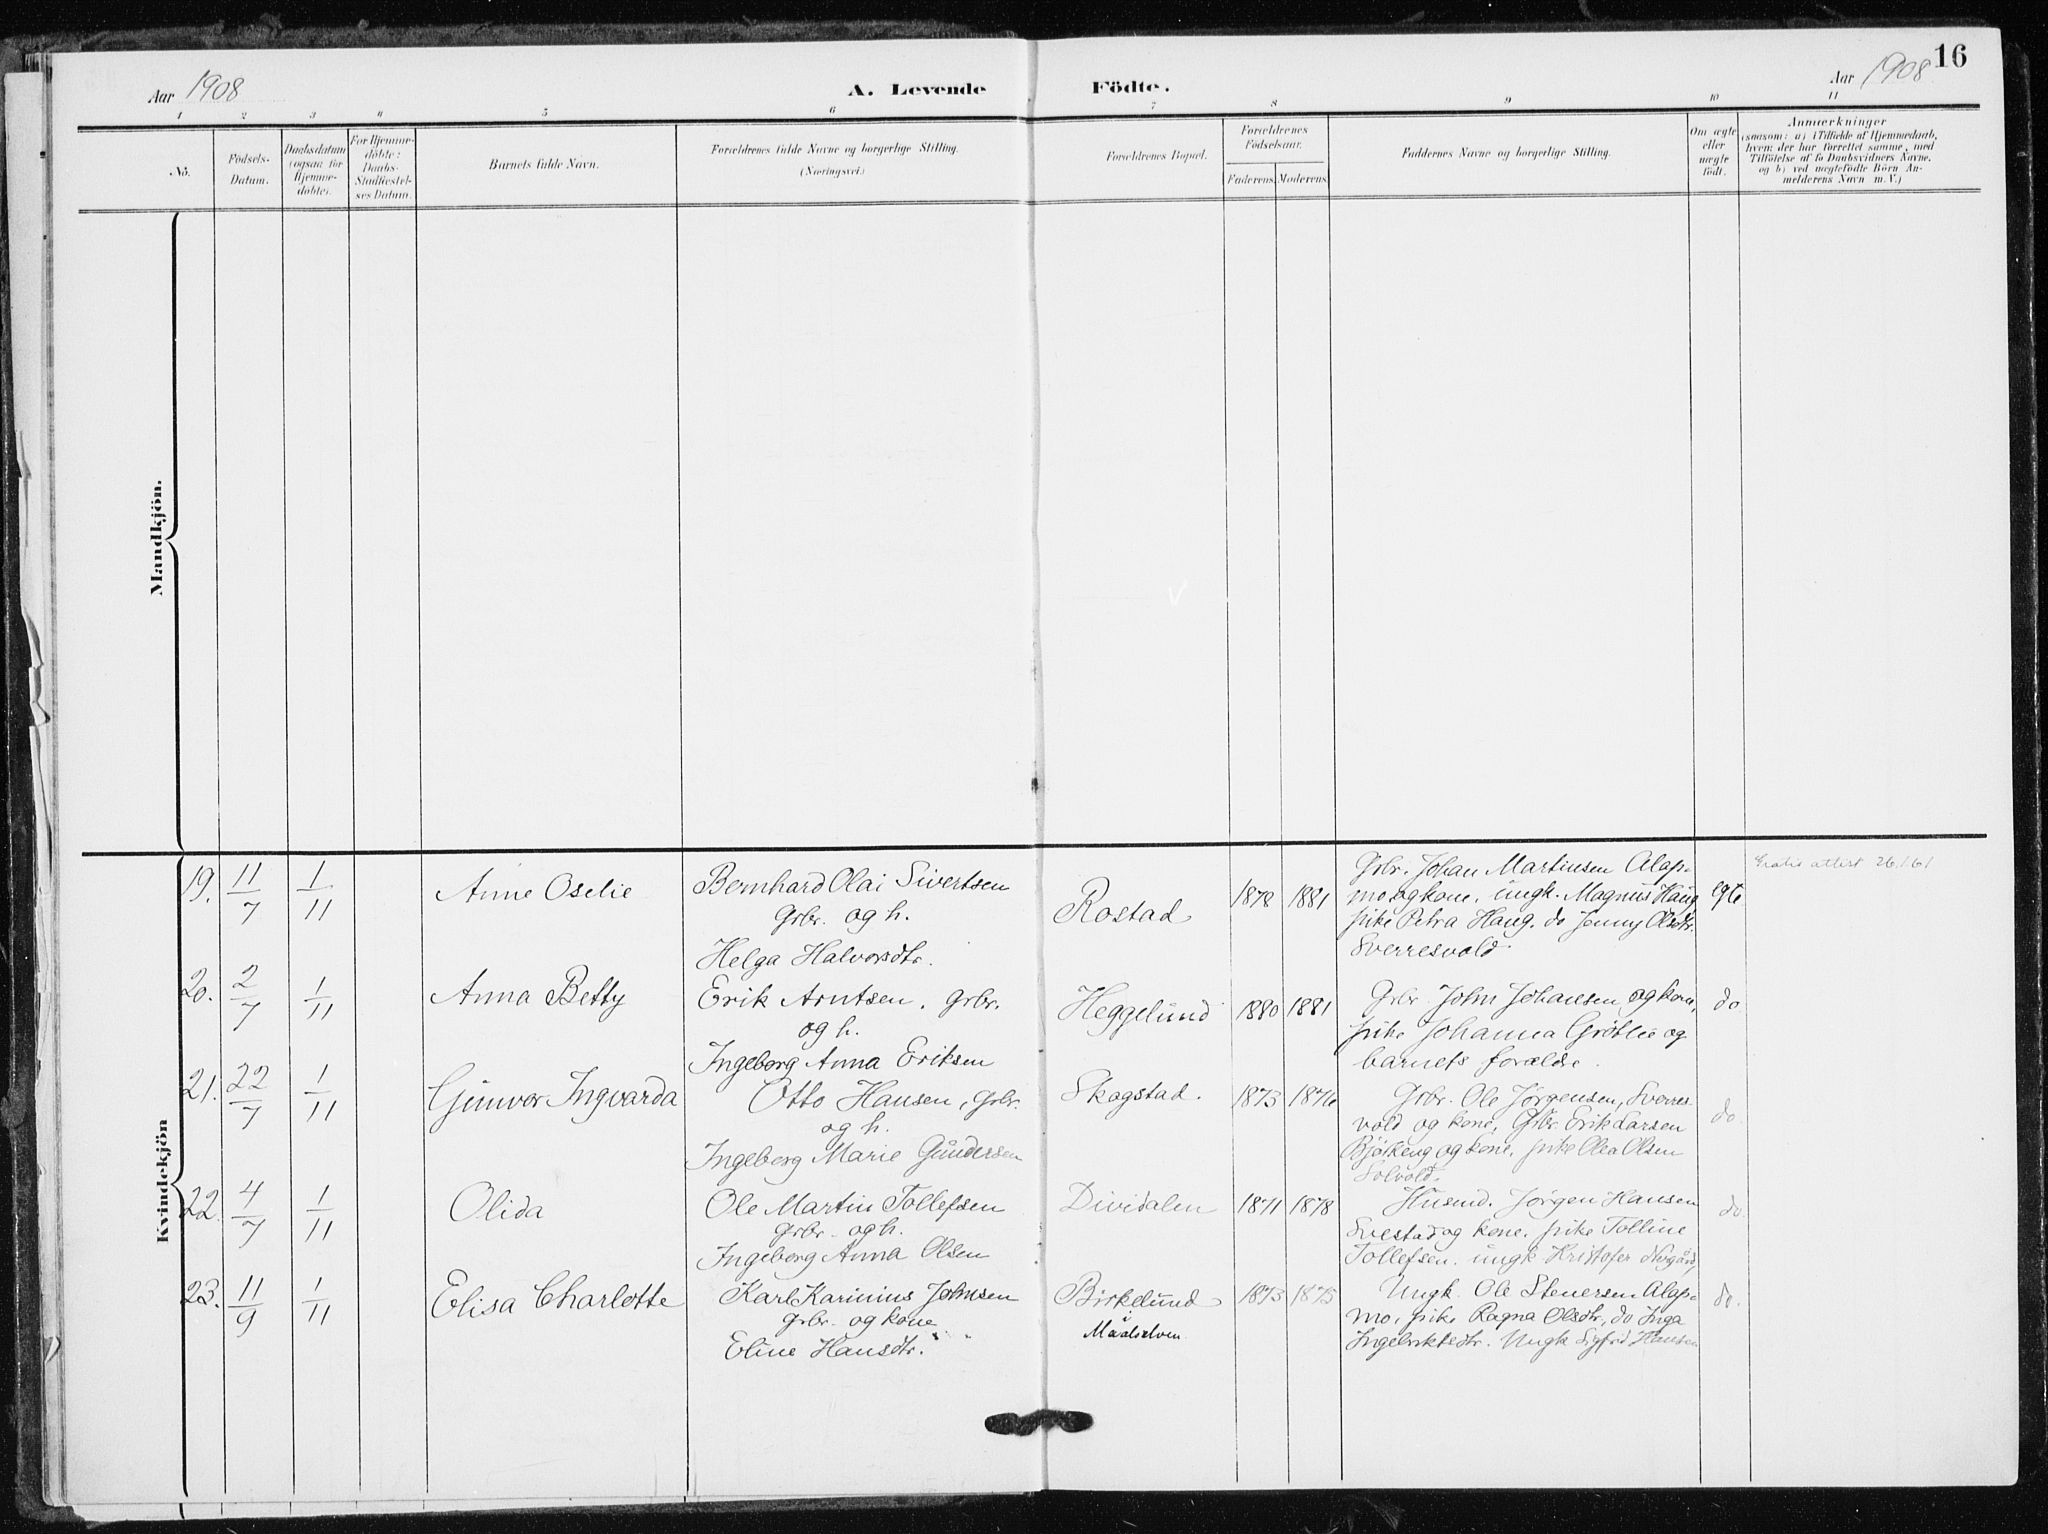 16
Aar 1908
A. Levende Födte.
Aar 1908
1 2 3 4 5 6 7 8 9 10 11
No.
Födsels-
Datum.
Daabsdatum
(ogsaa for
Hjemme-
döbte).
For Hjemme-
döbte:
Daabs-
Stadfæstel-
ses Datum.
Barnets fulde Navn.
Forældrenes fulde Navne og borgerlige Stilling.
(Næringsvei.)
Forældrenes Bopæl.
Forældrenes
Födselsaar.
Faderens. Moderens.
Faddernes Navne og borgerlige Stilling.
Om ægte
eller
uægte
födt.
Anmærkninger
(saasom: a) i Tilfælde af Hjemmedaab,
hvem der har forrettet samme, med
Tilföielse af to Daabsvidners Navne,
og b) ved uægtefödte Börn An-
melderens Navn m. V.)
Mandkjön.
Kvindekjön
19. 11/7 1/11 Anne Oselie
Bernhard Olai Sivertsen
Grbr. og h.
Helga Halvorsdtr.
Rostad 1878 1881
Grbr. Johan Martinsen Alap-
mo og kone, ungk. Magnus Haug
pike Petra Haug, do Jenny Olsdtr.
Sverresvold
egte
Gratis attest 26.1.61
20. 2/7 1/11 Anna Betty
Erik Arntsen, Grbr.
og h.
Ingeborg Anna Eriksen
Heggelund 1880 1881
Grbr. John Johansen og kone,
pike Johanna Grøtlie og
barnets forældre.
do
21. 22/7 1/11 Gunvor Ingvarda
Otto Hansen, Grbr.
og h.
Ingeborg Marie Gundersen
Skogstad. 1873 1876
Grbr. Ole Jørgensen, Sverres-
vold og kone, Grbr. Erik Larsen
Bjørkeng og kone, pike Olea Olsen
Solvold.
do
22. 4/7 1/11 Olida
Ole Martin Tollefsen
Grbr. og h.
Ingeborg Anna Olsen
Dividalen 1871 1878
Husmd. Jørgen Hansen
Svestad og kone, pike Talline
Tollefsen, ungk Kristofer Nygård,
do
23. 11/9 1/11 Elisa Charlotte
Karl Karinius Johnsen
Grbr. og kone
Eline Hansdtr.
Birkelund
Maalselven
1873 1875
Ungk. Ole Stenersen Alap-
mo, pike Ragna Olsdtr, do Inga
Ingebriktsdtr. Ungk Sigfrid Hansen
do.